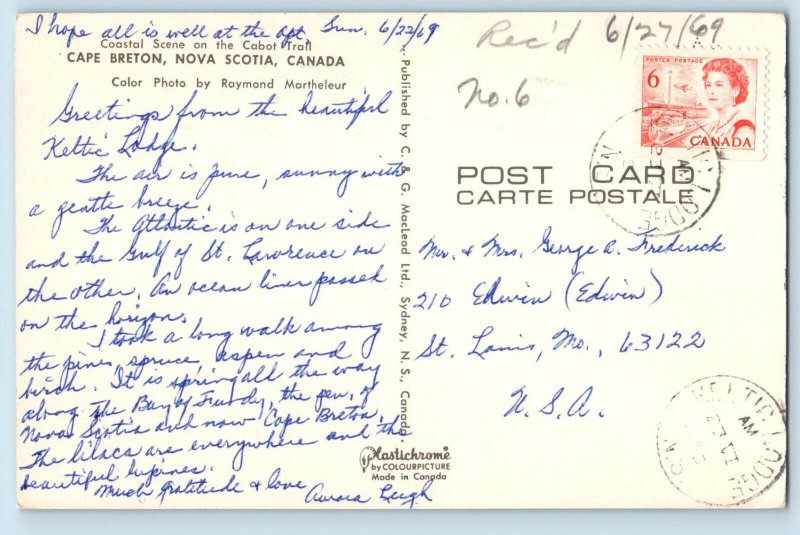 I hope all is well at the apt. Sun. 6/22/69
Coastal Scene on the Cabot Trail
CAPE BRETON, NOVA SCOTIA, CANADA
Color Photo by Raymond Martheleur
Greetings from the beautiful
Keltic Lodge.
The air is pure, sunny with
a gentle breeze.
The Atlantic is on one side
and the Gulf of St. Lawrence on
the other. An ocean liner passed
on the horizon.
I took a long walk among
the pines, spruce, aspen and
birch. It is spring all the way
along the Bay of Fundy, the pen. of
Nova Scotia and now Cape Breton.
The lilacs are everywhere and the
beautiful lupines.
Much gratitude & love
Aurora Leigh
Published by C. & G. MacLeod Ltd., Sydney, N. S., Canada.
Plastichrome
by COLOURPICTURE
Made in Canada
Rec'd 6/27/69
No. 6
POSTES POSTAGE
6
CANADA
POST CARD
CARTE POSTALE
Mr. & Mrs. George A. Frederick
210 Edwin (Edwin)
St. Louis, Mo., 63122
U.S.A.
KELTIC LODGE
AM
23
N.S.